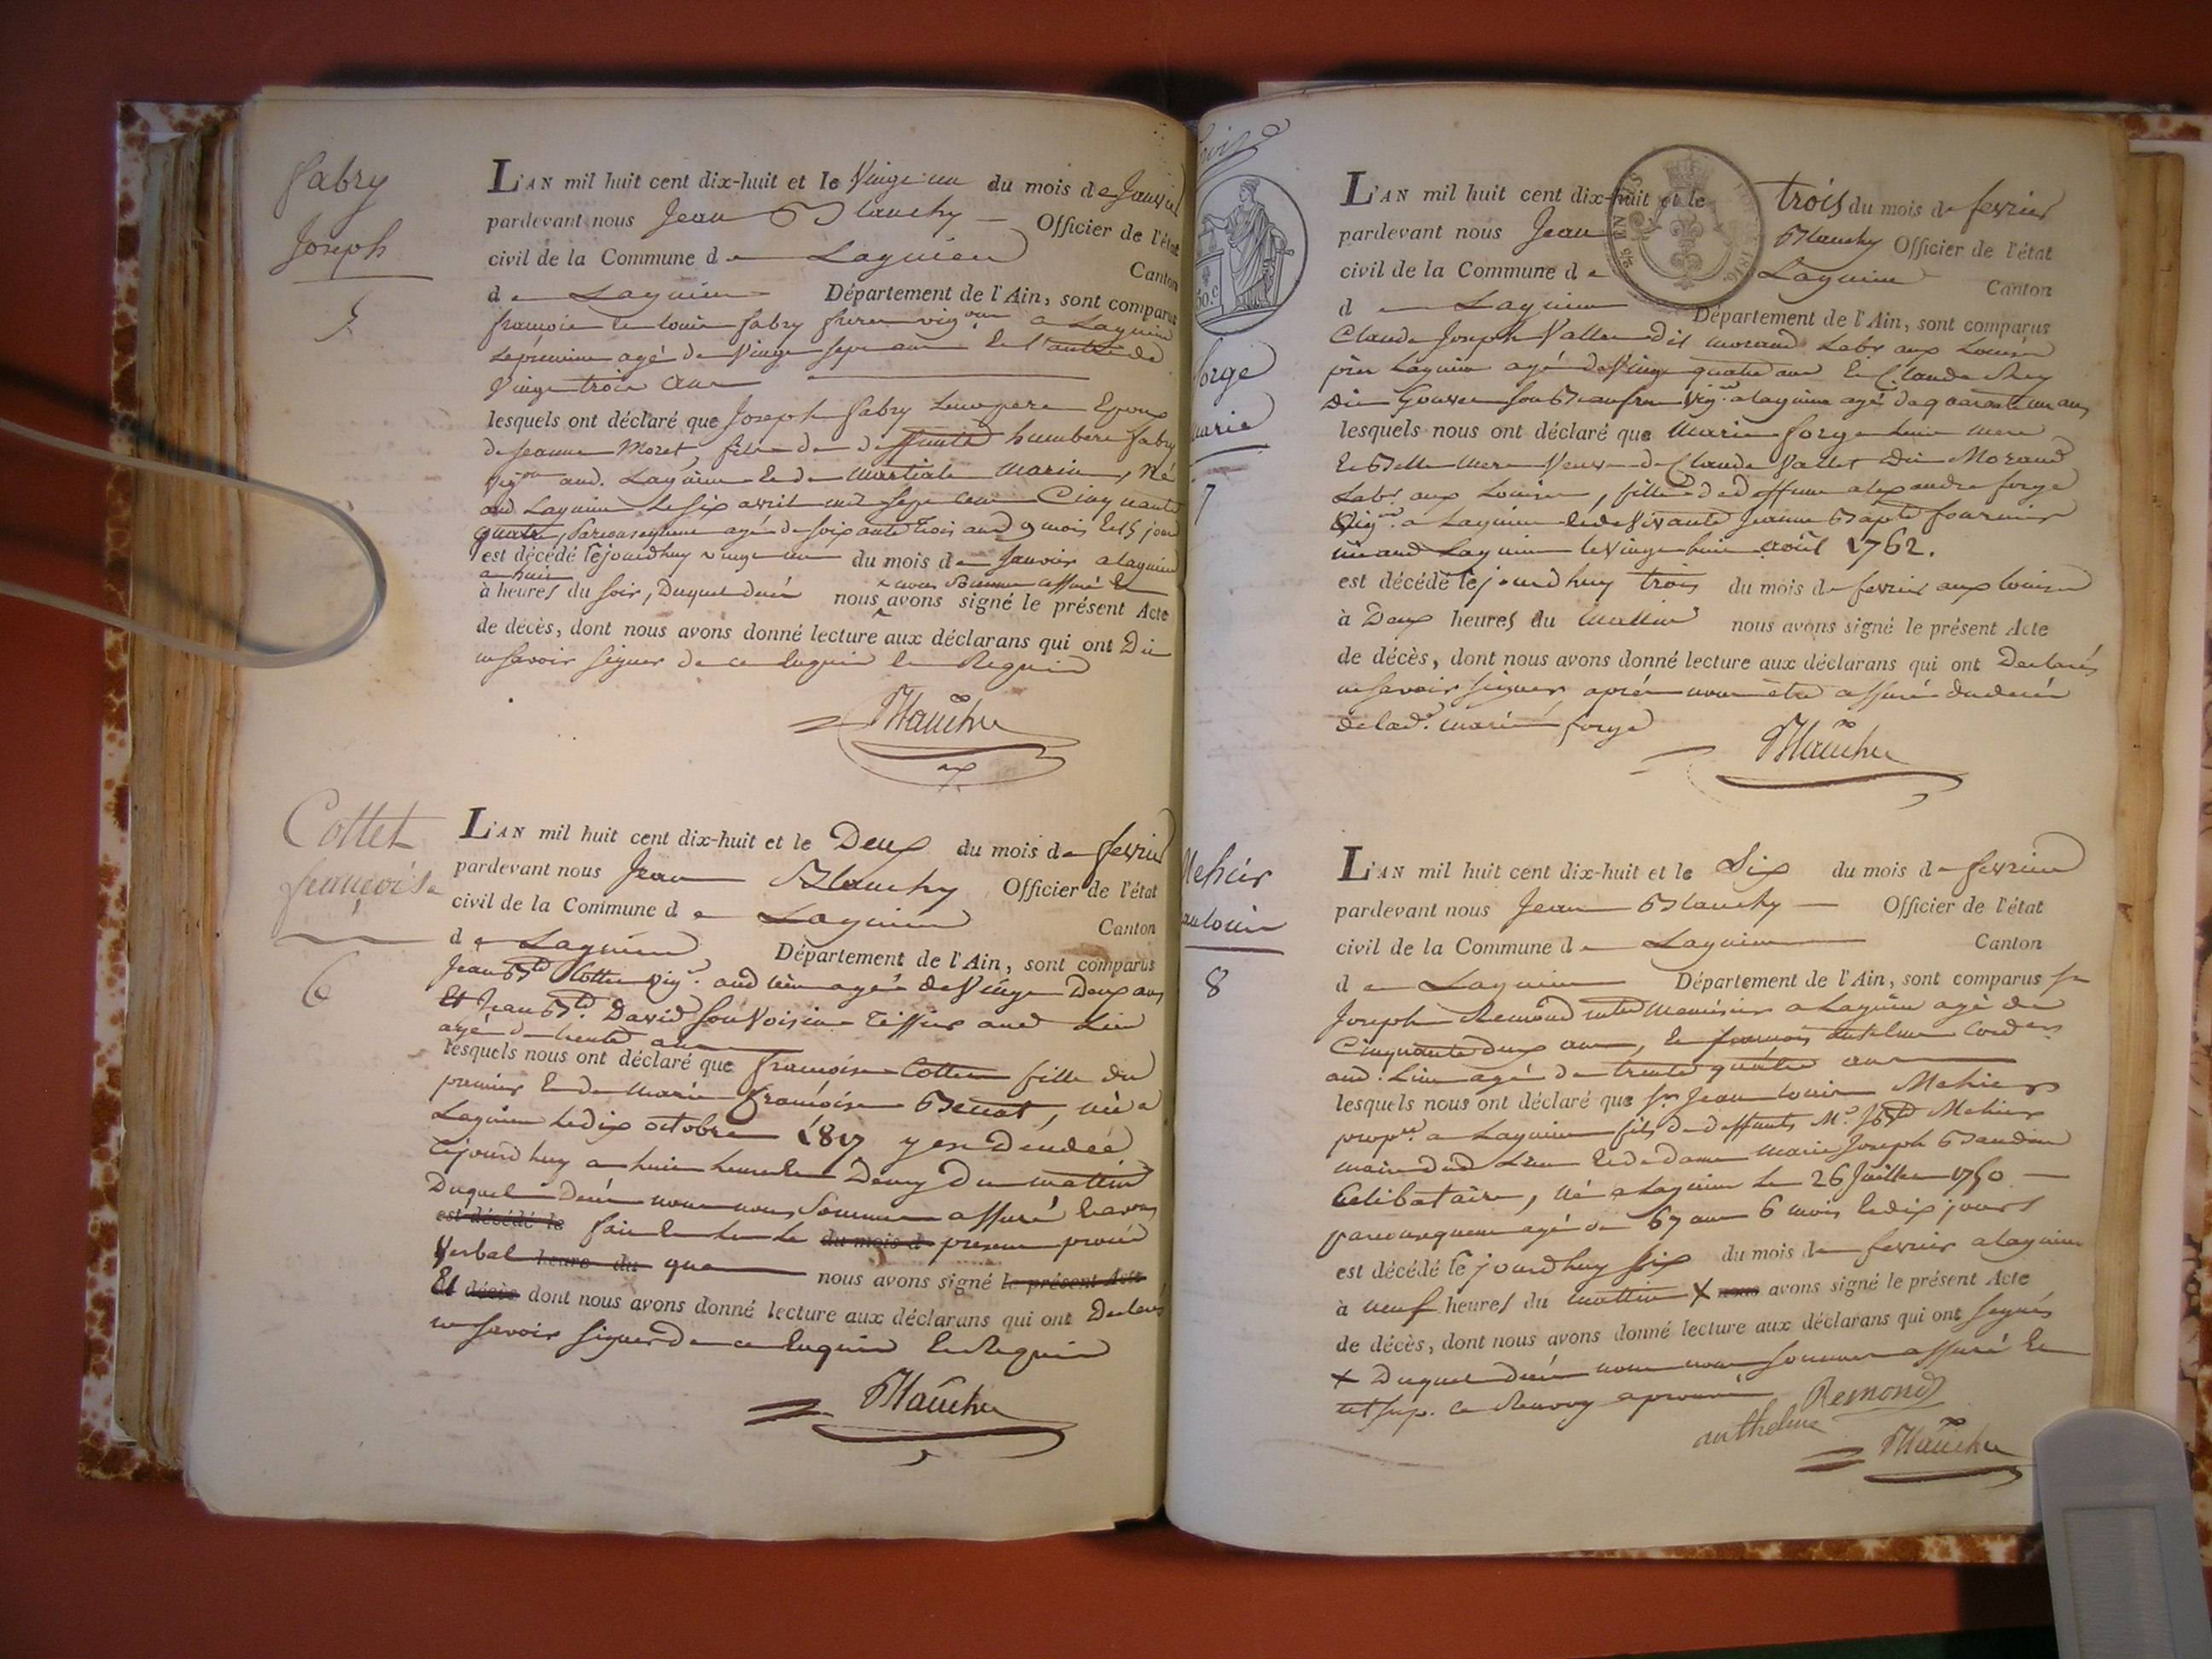 fabry
Joseph
5
L'AN mil huit cent dix-huit et le Vingt un du mois de Janvier
pardevant nous Jean Blanchy Officier de l'état
civil de la Commune de Lagnieu Canton
de Lagnieu Département de l'Ain, sont comparus
françois et louis fabry freres vig.ons a Lagnieu
le premier agé de Vingt sept ans et l'autre de
Vingt trois ans
lesquels ont déclaré que Joseph fabry leur pere Epoux
de Jeanne Moret, fils de deffunts humbert fabry
vig.on aud. Lagnieu et de Martiale Marin, né
aud Lagnieu le six avril mil sept cent Cinquante
quatre, par consequent agé de soixante trois ans 9 mois et 15 jours
est décédé cejourdhuy vingt un du mois de Janvier a lagnieu
a huit
à heures du soir, Duquel decés nous avons signé le présent Acte
nous sommes assuré et
de décès, dont nous avons donné lecture aux déclarans qui ont Dit
ne savoir signer de ce Enquis et Requis
Blanchy
Cottet
françoise
6
L'AN mil huit cent dix-huit et le Deux du mois de fevrier
pardevant nous Jean Blanchy Officier de l'état
civil de la Commune de Lagnieu Canton
de Lagnieu Département de l'Ain, sont comparus
Jean B.te Cottet vig.on aud lieu agé de Vingt Deux ans
Et Jean B.te David son Voisin Tissier aud Lieu
agé de trente ans
lesquels nous ont déclaré que françoise Cottet fille du
premier et de Marie françoise Benat, née a
Lagnieu le dix octobre 1817 y est décédée
cejourdhuy a huit heures et Demy du mattin
Duquel decés nous nous sommes assuré et avons
est décédé le fait et du mois d present procès
Verbal heure du que nous avons signé le présent Acte
Et décès dont nous avons donné lecture aux déclarans qui ont Declaré
ne savoir signer de ce Enquis et Requis
Blanchy
60.c
forge
marie
7
L'AN mil huit cent dix-huit et le trois du mois de fevrier
pardevant nous Jean Blanchy Officier de l'état
civil de la Commune de Lagnieu Canton
de Lagnieu Département de l'Ain, sont comparus
Claude Joseph Vallet dit morand Lab.r aux Louises
près Lagnieu agé de Vingt quatre ans et Claude Rey
dit son Beaufrere vig.on a lagnieu agé de quarante un ans
lesquels nous ont déclaré que Marie forge leur mere
et Belle mere Veuve de Claude Vallet Dit Morand
Lab.r aux Louises, fille de deffunt alexandre forge
Vig.on a Lagnieu et de Vivante Jeanne Bapte fournier
née aud Lagnieu le vingt huit août 1762.
est décédé cejourdhuy trois du mois de fevrier aux louises
à Deux heures du mattin nous avons signé le présent Acte
de décès, dont nous avons donné lecture aux déclarans qui ont Declarés
ne savoir signer, après nous être assuré du decés
de lad.e marie forge
Blanchy
Mehier
8
L'AN mil huit cent dix-huit et le Six du mois de fevrier
pardevant nous Jean Blanchy Officier de l'état
civil de la Commune de Lagnieu Canton
de Lagnieu Département de l'Ain, sont comparus s.r
Joseph Remond a Lagnieu agé de
Cinquante deux ans, et françois anthelme Cord.er
aud. Lieu agé de trente quatre ans
lesquels nous ont déclaré que s.r Jean louis Mehier
prop.re a Lagnieu fils de deffunts M.r J B.te Mehier
maire dud Lieu et de dame Marie Joseph Baudin
Celibataire, né a Lagnieu le 26 Juillet 1750
par consequent agé de 67 ans 6 mois et dix jours
est décédé cejourdhuy six du mois de fevrier a lagnieu
à neuf heures du mattin X nous avons signé le présent Acte
de décès, dont nous avons donné lecture aux déclarans qui ont signés
X Duquel decés nous nous sommes assuré et
ut sup. ce Renvoy aprouvé Remond
anthelme
Blanchy